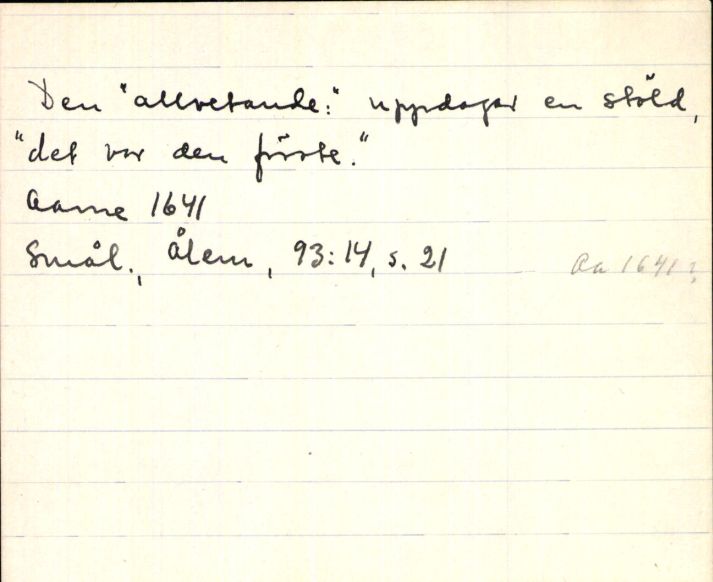 Den "allvetande:" uppdagar en stöld,
"det var den förste."
Aarne 1641
Smål., Ålem, 93:14, s. 21
Aa 1641?